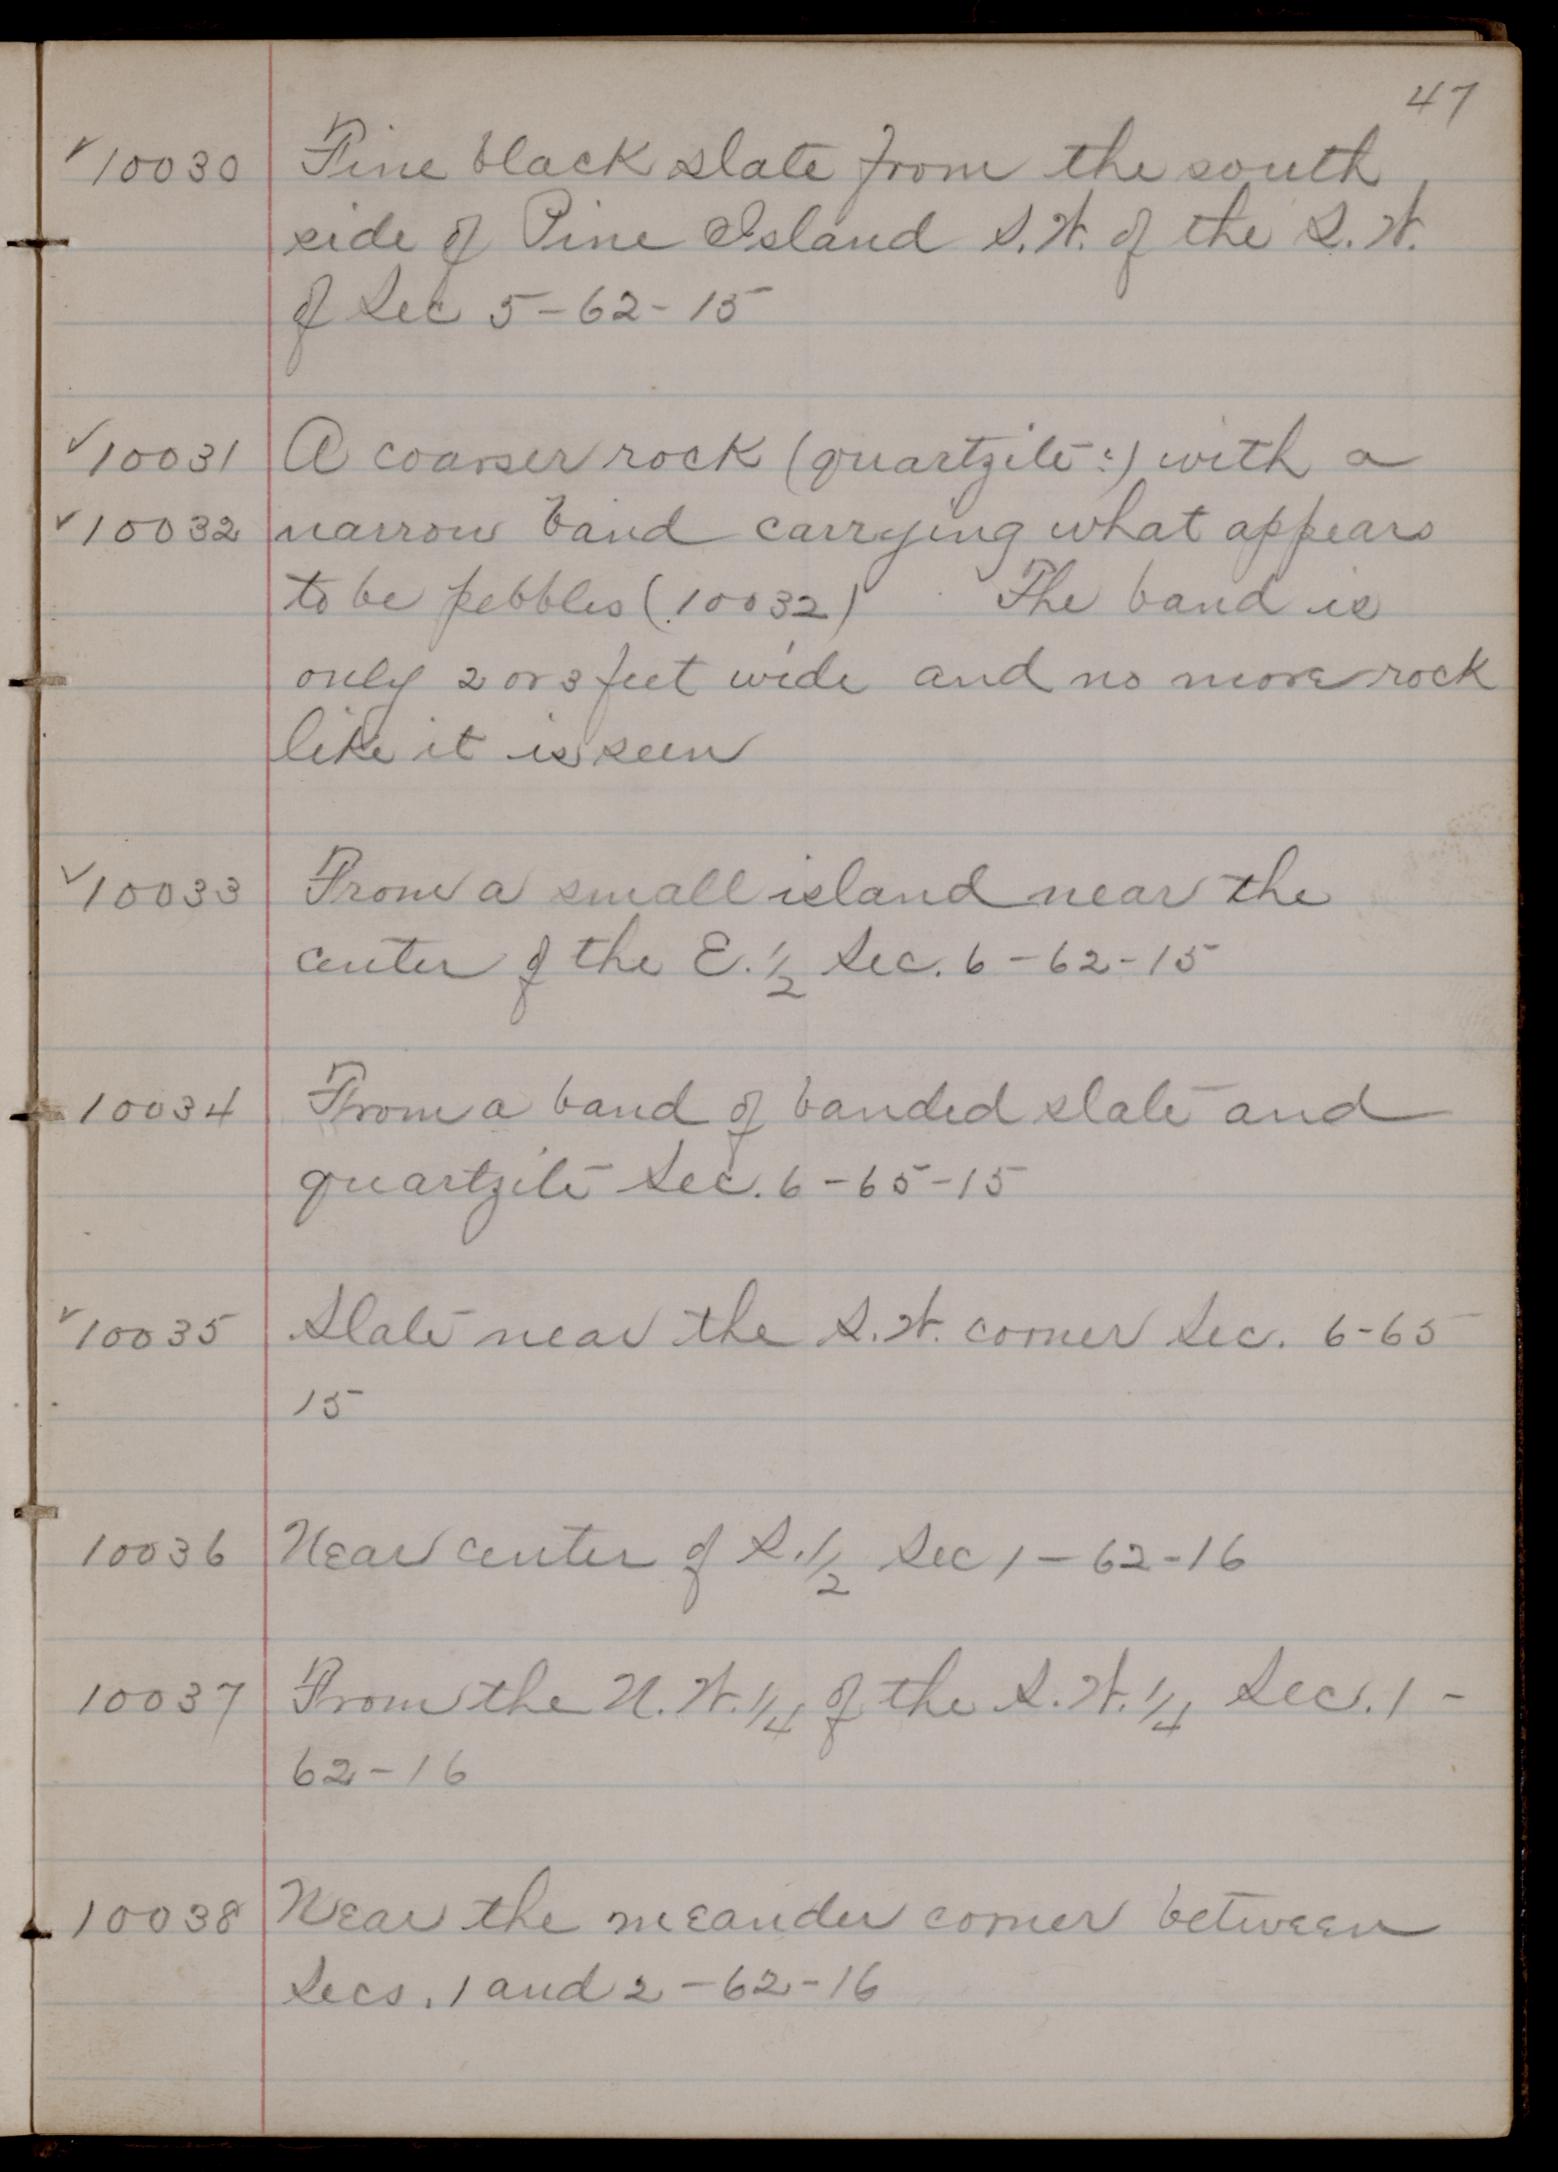 47
✓10030 Fine black slate from the south
side of Pine Island S.W. of the S.W.
of Sec 5-62-15
✓10031 A coarser rock (quartzite?) with a
✓10032 narrow band carrying what appears
to be pebbles (10032) The band is
only 2 or 3 feet wide and no more rock
like it is seen
✓10033 From a small island near the
center of the E. 1/2 Sec. 6-62-15
10034 From a band of banded slate and
quartzite Sec. 6-65-15
✓10035 Slate near the S.W. corner Sec. 6-65
15
10036 Near center of S. 1/2 Sec 1-62-16
10037 From the N.W. 1/4 of the S.W. 1/4 Sec. 1-
62-16
10038 Near the meander corner between
Secs. 1 and 2-62-16